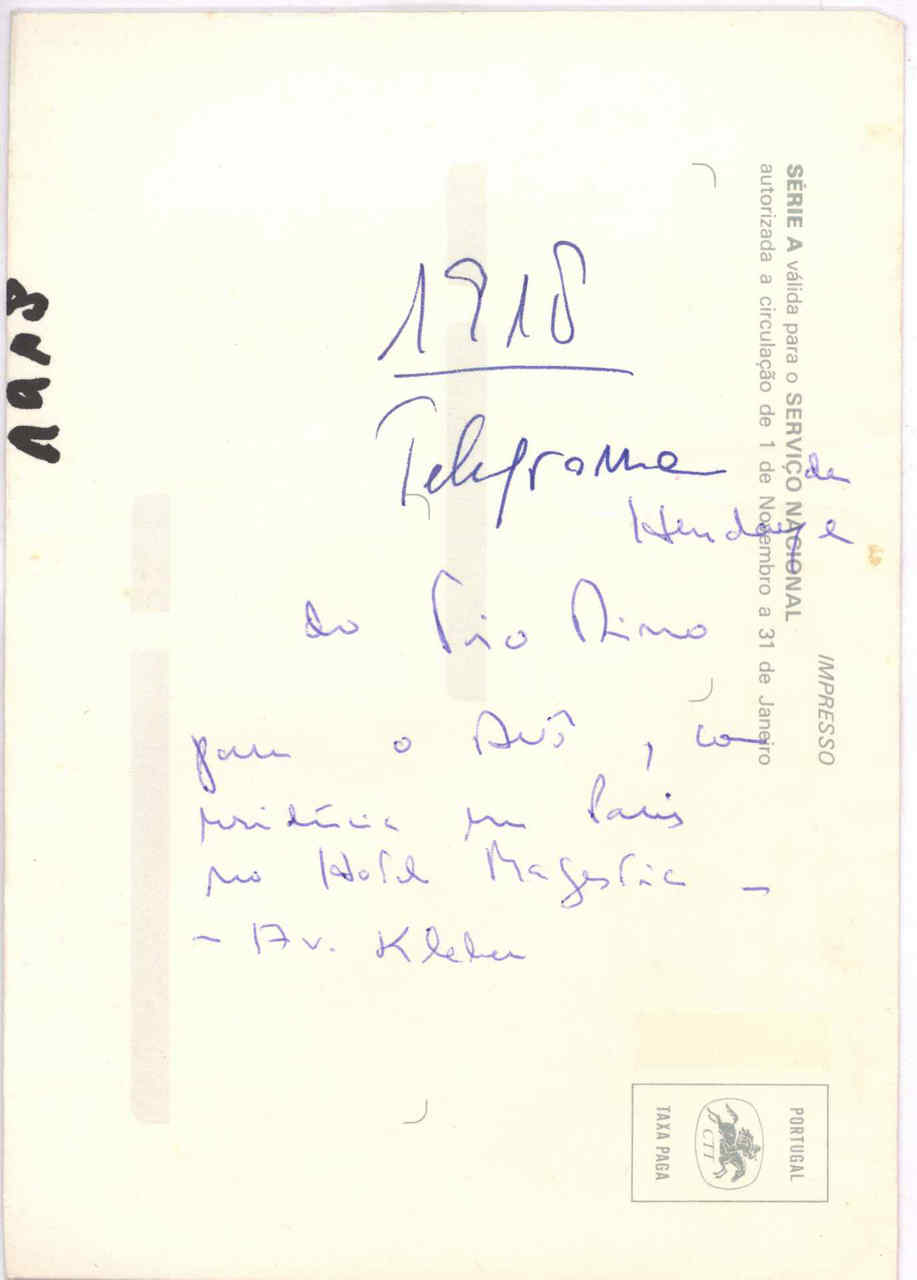 1918
Telegrama de
Hendaye
do Tio Mimo
para o Avô, com
residência em Paris
no Hotel Magestic -
- Av. Kleber
1918
SÉRIE A válida para o SERVIÇO NACIONAL
autorizada a circulação de 1 de Novembro a 31 de Janeiro
IMPRESSO
PORTUGAL
CTT
TAXA PAGA